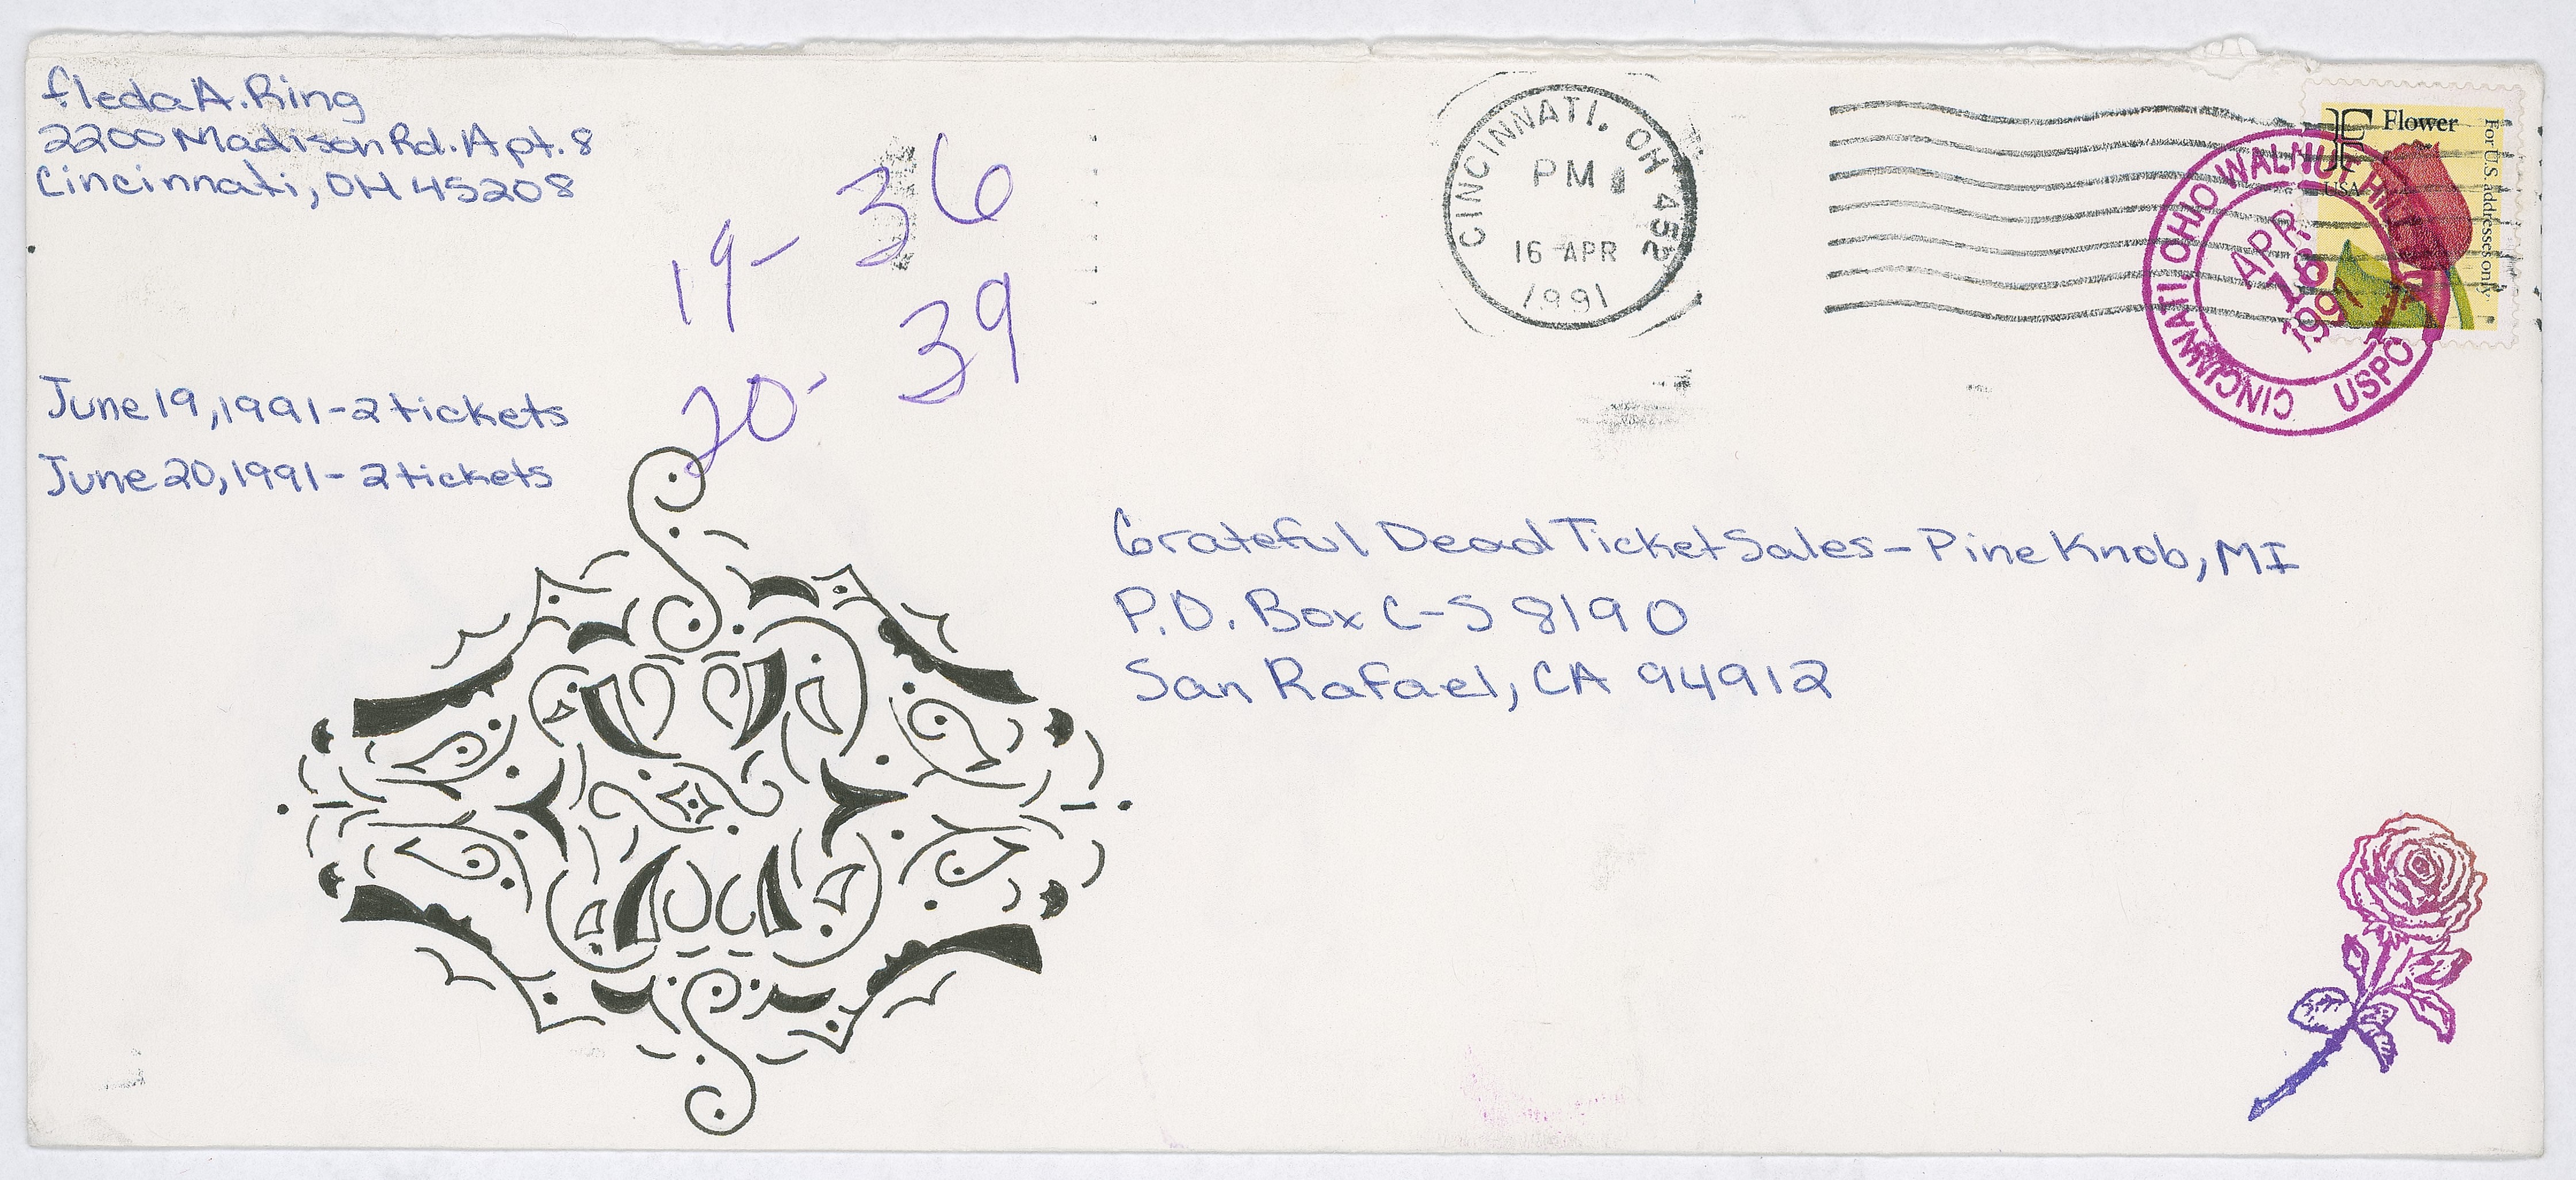 Fleda A. Ring
2200 Madison Rd. Apt. 8
Cincinnati, OH 45208
19- 36
20- 39
June 19, 1991 - 2 tickets
June 20, 1991 - 2 tickets
CINCINNATI, OH 452
PM
16 APR
1991
F Flower
USA
For U.S. addresses only
CINCINNATI, OHIO WALNUT HILLS
APR 16 1991
USPO
Grateful Dead Ticket Sales - Pine Knob, MI
P.O. Box C-S 8190
San Rafael, CA 94912